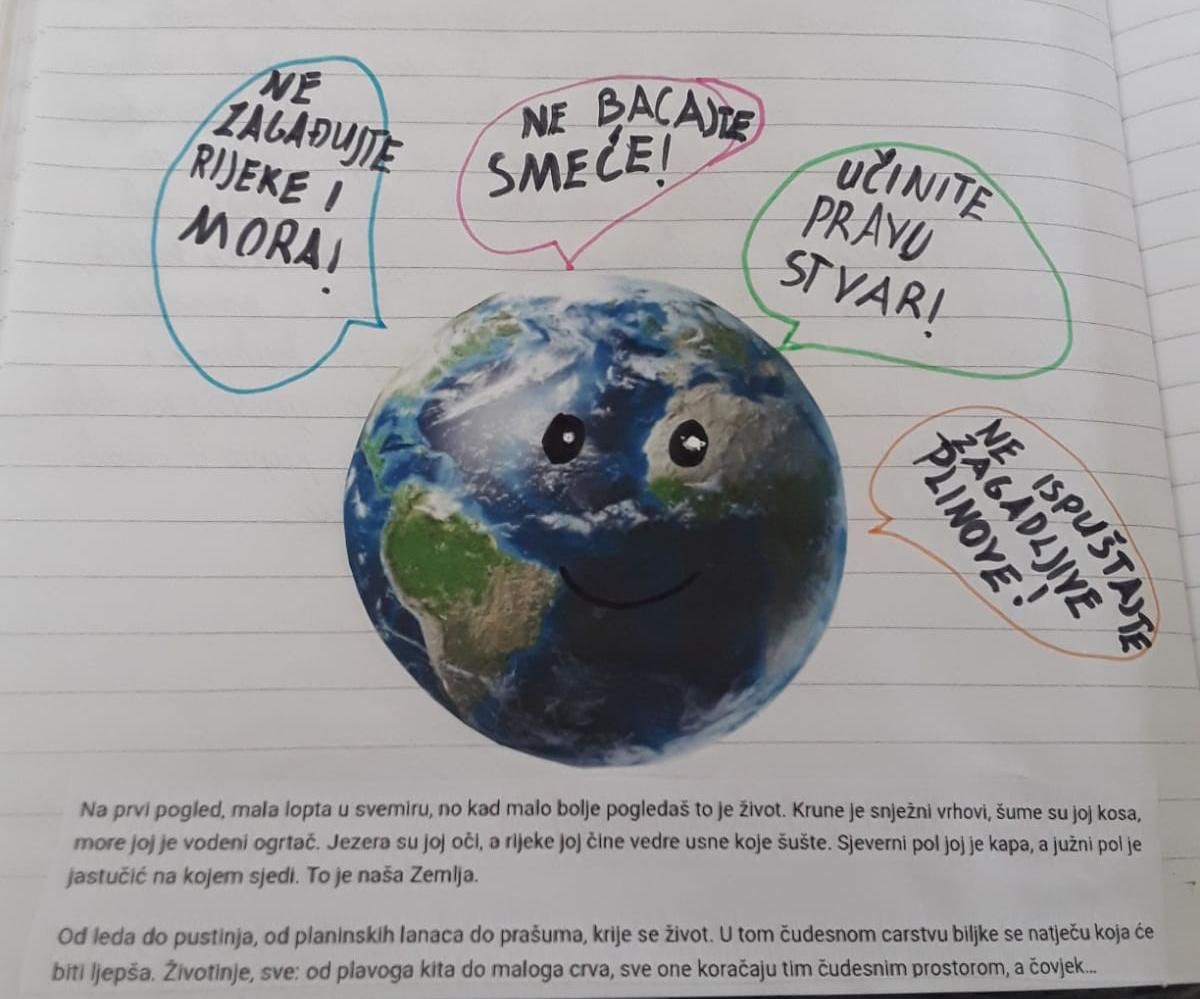 NE
ZAGAĐUJTE
RIJEKE I
MORA!
NE BACAJTE
SMEĆE!
UČINITE
PRAVU
STVAR!
NE ISPUŠTAJTE
ZAGADLJIVE
PLINOVE!
Na prvi pogled, mala lopta u svemiru, no kad malo bolje pogledaš to je život. Krune je snježni vrhovi, šume su joj kosa,
more joj je vodeni ogrtač. Jezera su joj oči, a rijeke joj čine vedre usne koje šušte. Sjeverni pol joj je kapa, a južni pol je
jastučić na kojem sjedi. To je naša Zemlja.
Od leda do pustinja, od planinskih lanaca do prašuma, krije se život. U tom čudesnom carstvu biljke se natječu koja će
biti ljepša. Životinje, sve: od plavoga kita do maloga crva, sve one koračaju tim čudesnim prostorom, a čovjek...